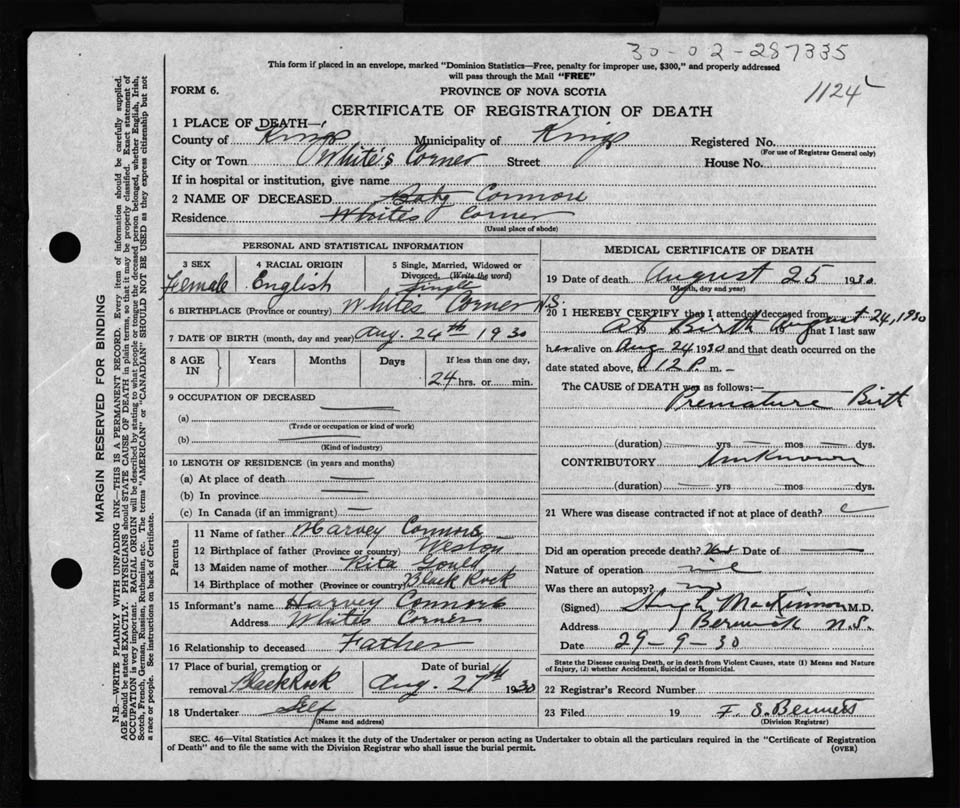 30-02-287335
This form if placed in an envelope, marked "Dominion Statistics—Free, penalty for improper use, $300," and properly addressed
will pass through the Mail "FREE"
1124
FORM 6. PROVINCE OF NOVA SCOTIA
CERTIFICATE OF REGISTRATION OF DEATH
1 PLACE OF DEATH—
County of Kings Municipality of Kings Registered No.
(For use of Registrar General only)
City or Town White's Corner Street House No.
If in hospital or institution, give name
2 NAME OF DECEASED Baby Connors
Residence Whites Corner
(Usual place of abode)
PERSONAL AND STATISTICAL INFORMATION
3 SEX 4 RACIAL ORIGIN 5 Single, Married, Widowed or
Divorced. (Write the word)
Female English Single
6 BIRTHPLACE (Province or country) Whites Corner N.S.
7 DATE OF BIRTH (month, day and year) Aug. 24th 1930
8 AGE IN Years Months Days If less than one day,
24 hrs. or min.
9 OCCUPATION OF DECEASED
(a)
(Trade or occupation or kind of work)
(b)
(Kind of industry)
10 LENGTH OF RESIDENCE (in years and months)
(a) At place of death
(b) In province
(c) In Canada (if an immigrant)
Parents
11 Name of father Harvey Connors
12 Birthplace of father (Province or country) Weston
13 Maiden name of mother Rita Gould
14 Birthplace of mother (Province or country) Black Rock
15 Informant's name Harvey Connors
Address Whites Corner
16 Relationship to deceased Father
17 Place of burial, cremation or Date of burial
removal Black Rock Aug. 27th 1930
18 Undertaker Self
(Name and address)
MEDICAL CERTIFICATE OF DEATH
19 Date of death August 25 1930
(Month, day and year)
20 I HEREBY CERTIFY that I attended deceased from
At Birth August 24, 1930 that I last saw
her alive on Aug 24 1930 and that death occurred on the
date stated above, 12 P. m.
The CAUSE of DEATH was as follows:—
Premature Birth
(duration) yrs mos dys.
CONTRIBUTORY Unknown
(duration) yrs mos dys.
21 Where was disease contracted if not at place of death?
Did an operation precede death? Date of
Nature of operation nil
Was there an autopsy? no
(Signed) Hugh MacKinnon M.D.
Address Berwick N.S.
Date 29-9-30
State the Disease causing Death, or in death from Violent Causes, state (1) Means and Nature
of Injury, (2) whether Accidental, Suicidal or Homicidal.
22 Registrar's Record Number
23 Filed 19 F. S. Bennett
(Division Registrar)
SEC. 46—Vital Statistics Act makes it the duty of the Undertaker or person acting as Undertaker to obtain all the particulars required in the "Certificate of Registration
of Death" and to file the same with the Division Registrar who shall issue the burial permit. (OVER)
MARGIN RESERVED FOR BINDING
N.B.—WRITE PLAINLY WITH UNFADING INK—THIS IS A PERMANENT RECORD. Every item of information should be carefully supplied.
AGE should be stated EXACTLY. PHYSICIANS should STATE CAUSE OF DEATH in plain terms, so that it may be properly classified. Exact statement of
OCCUPATION is very important. RACIAL ORIGIN will be described by stating to what people or tongue the deceased person belonged, whether English, Irish,
Scotch, French, German, Russian, Ruthenian, etc. The terms "AMERICAN" or "CANADIAN" SHOULD NOT BE USED as they express citizenship but not
a race or people. See instructions on back of Certificate.